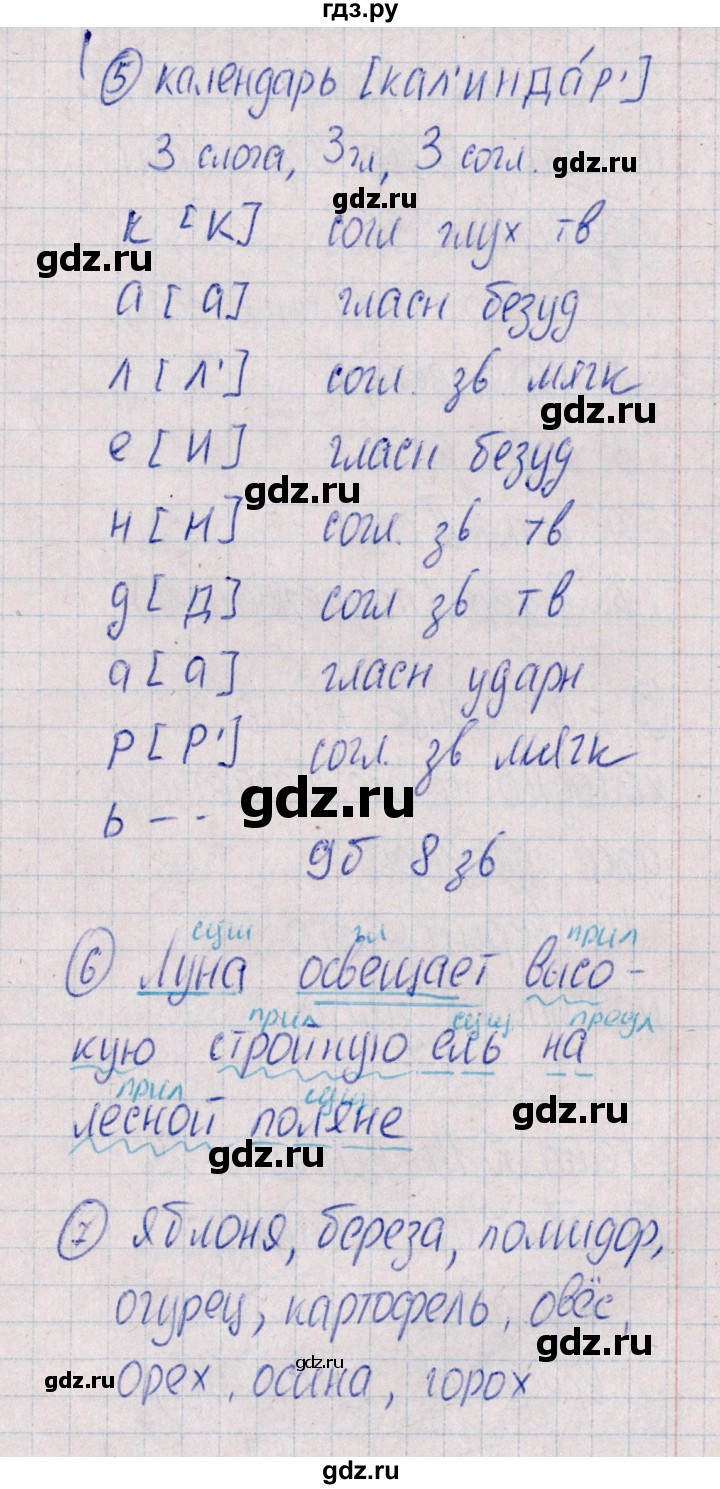 гдз.ру
5 календарь [кал'инда́р']
3 слога, 3 гл, 3 согл. gdz.ru
gdz.ru
к [к] согл глух тв
gdz.ru
а [а] гласн безуд
л [л'] согл. зв мягк
gdz.ru
е [и] гласн безуд
gdz.ru
н [н] согл. зв тв
д [д] согл зв тв
а [а] гласн ударн
р [р'] согл. зв мягк
gdz.ru
ь - -
9б 8 зв
сущ гл прил
6 Луна освещает высо-
прил сущ предл
кую стройную ель на
прил сущ
лесной поляне gdz.ru
gdz.ru
7 Яблоня, береза, помидор,
огурец, картофель, овёс,
gdz.ru
gdz.ru
gdz.ru орех, осина, горох
gdz.ru
gdz.ru